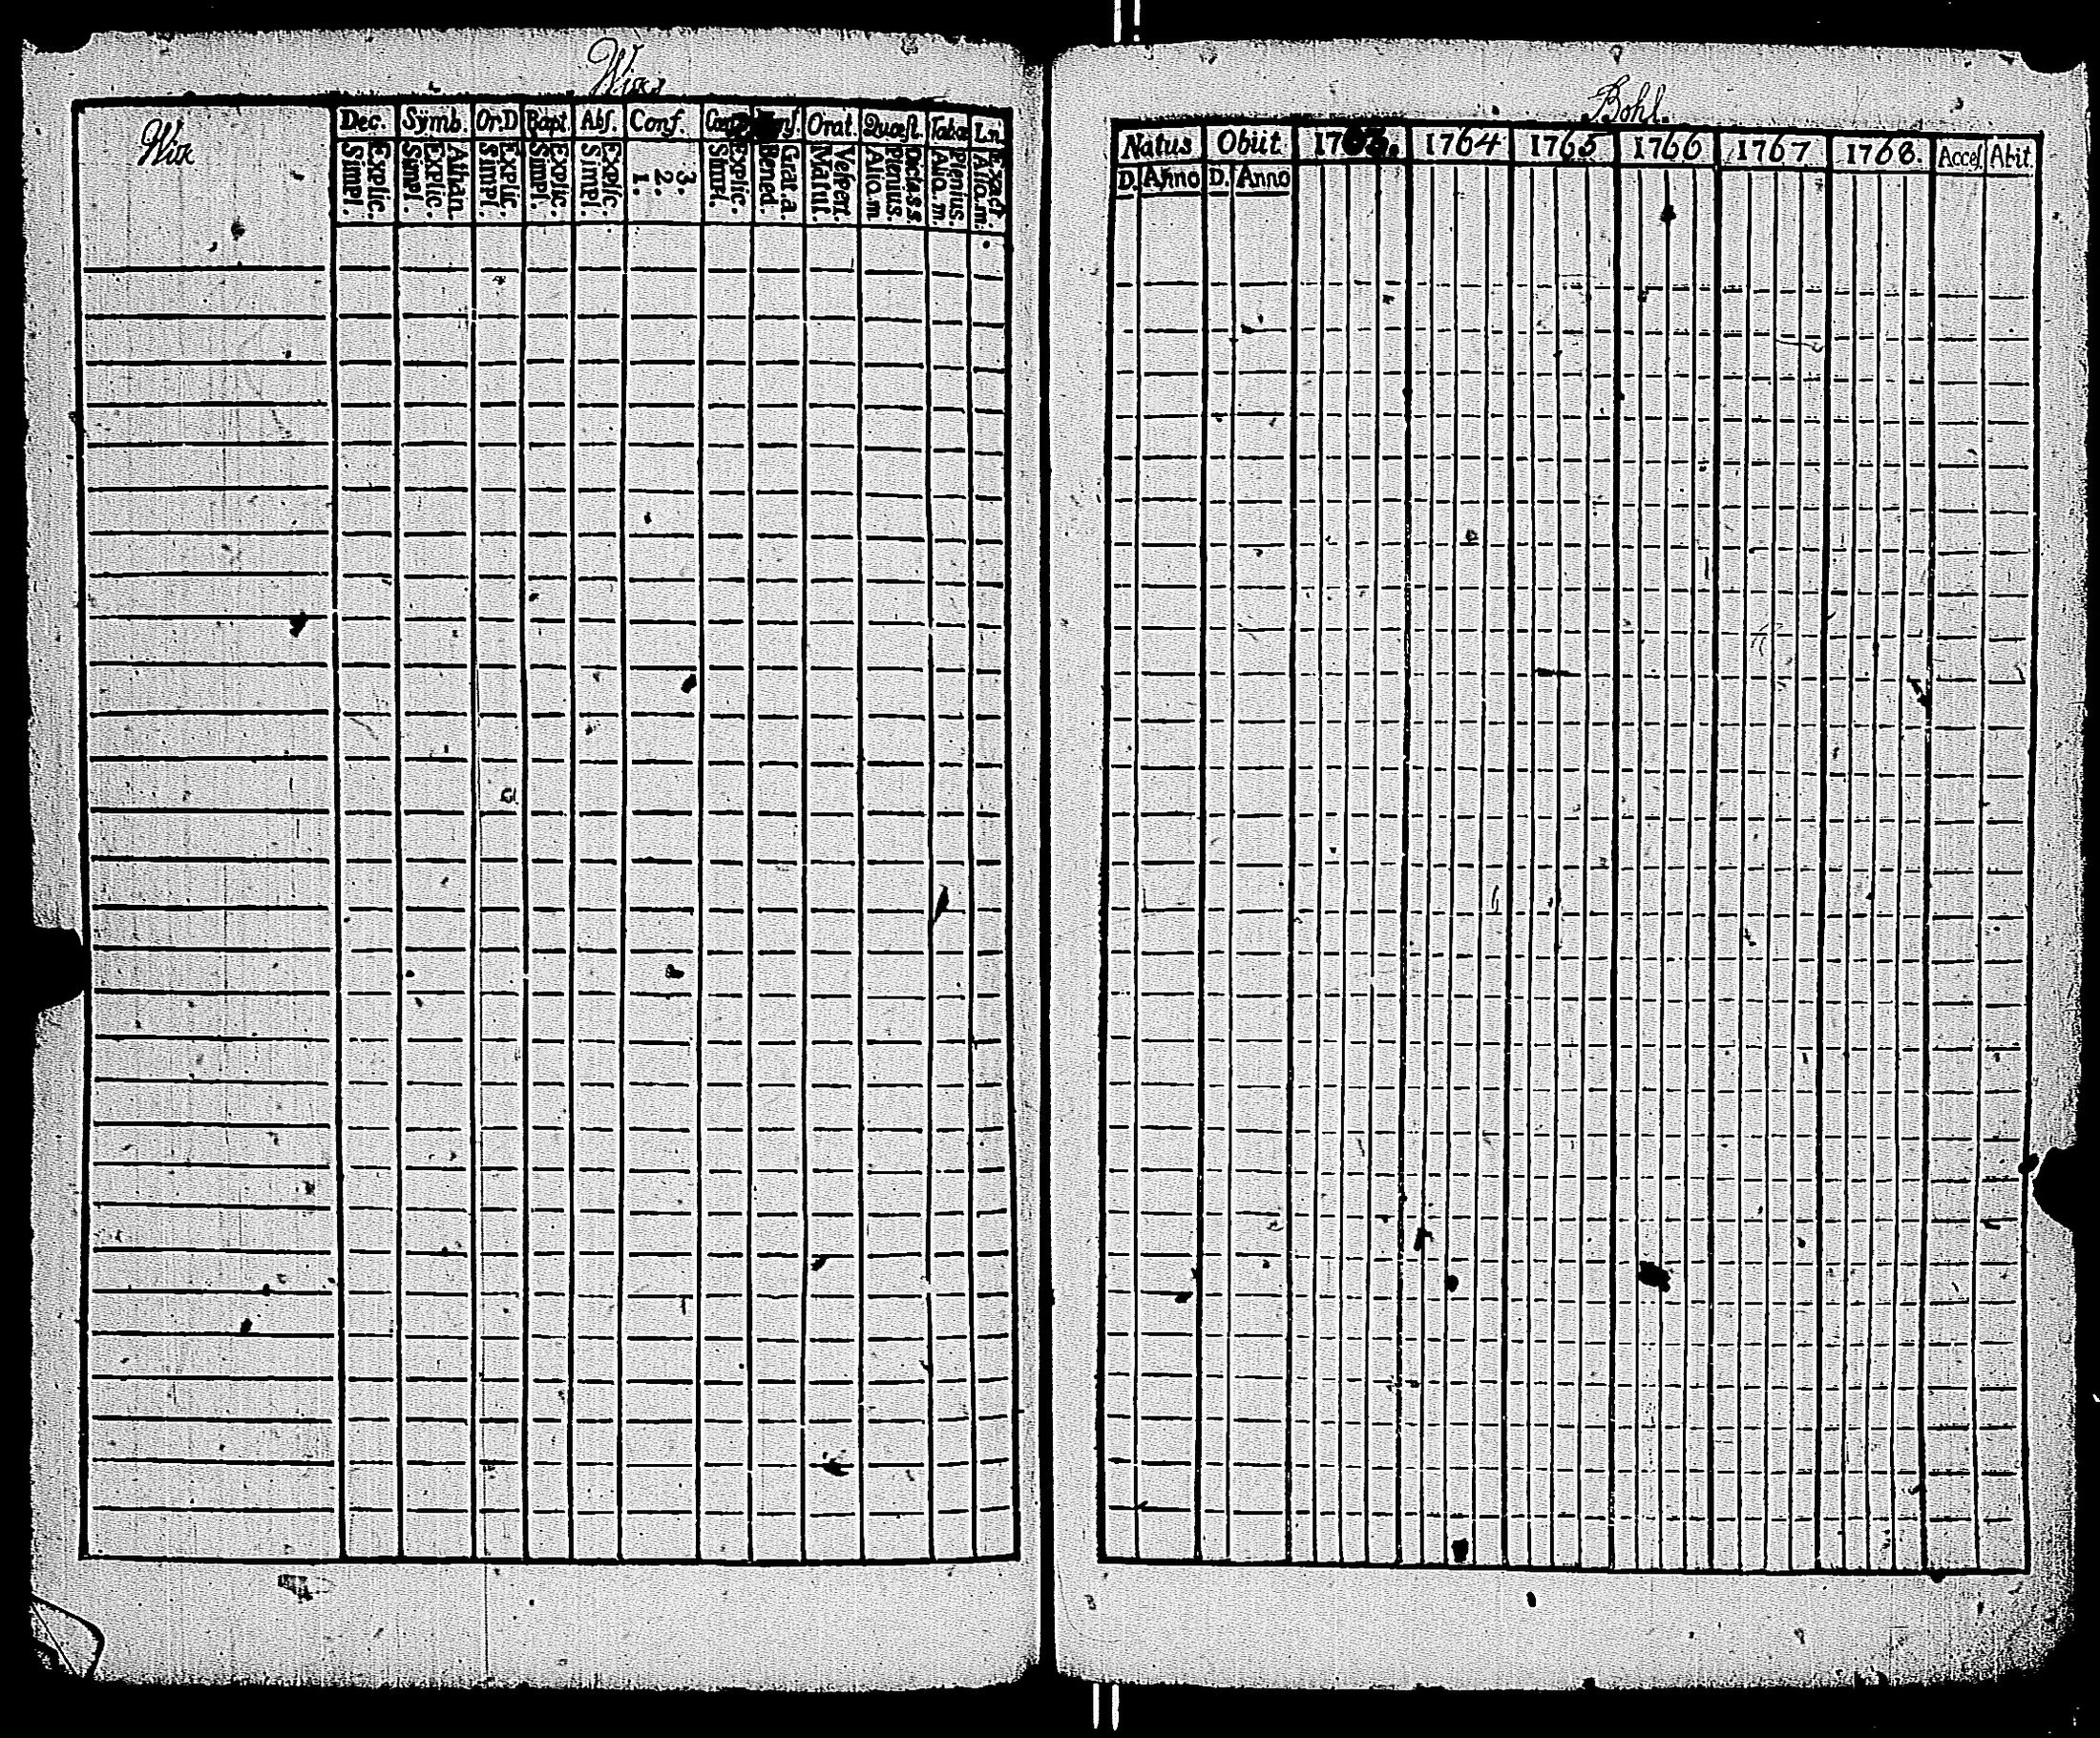 Wix
Wix
Dec. Symb. Or.D Bapt. Abs. Conf. Orat. Quæst. Tabœ Ln.
Simpl. Explic. Simpl. Explic. Athan. Simpl. Explic. Simpl. Explic. Simpl. Explic. 1. 2. 3. Simpl. Explic. Bened. Grat.a. Matut. Vesper. Alio.m. Plenius. Dict.s.s. Alio.m. Plenius. Alio.m. Exact.
Bohl.
Natus Obiit. 1763. 1764 1765 1766 1767 1768. Acces. Abit.
D. Anno D. Anno